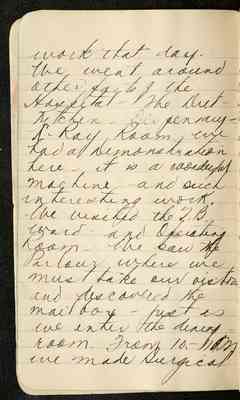 work that day.
We went around
other parts of the
Hospital - The Diet
Kitchen - Dispensary -
X-Ray Room, we
had a demonstration
here - it is a wonderful
machine - and such
interesting work.
We visited the T.B.
ward - and Operating
Room - We saw the
Parlour where we
must take our visitors
and discovered the
mail box - just as
we enter the dining -
room. From 10 - 11
we made Surgical